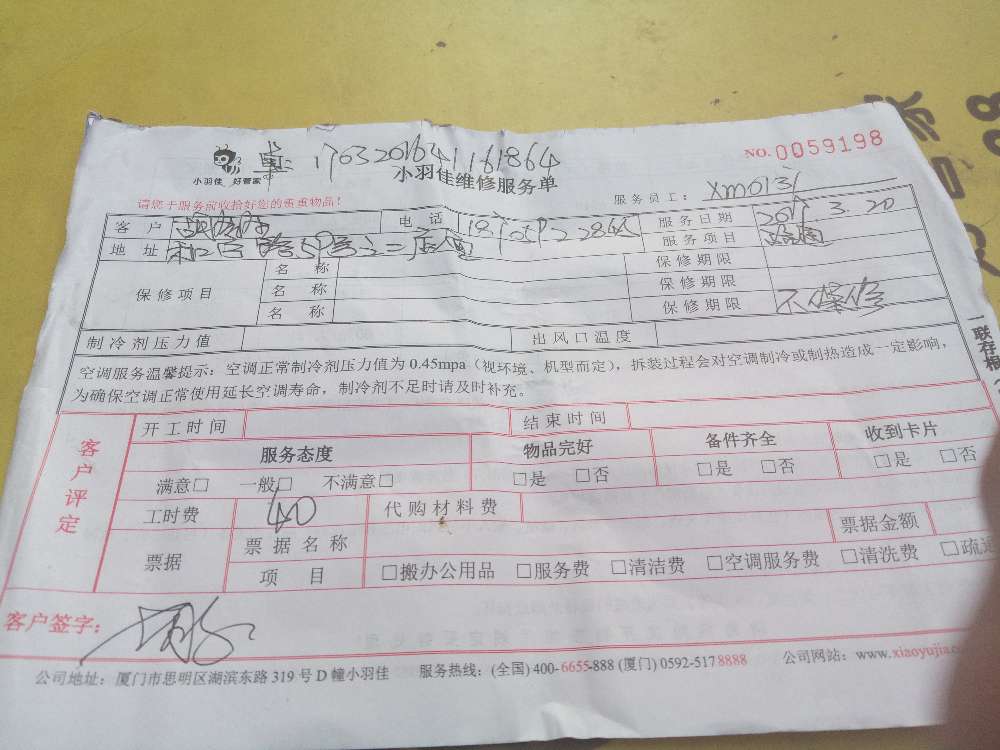 小羽佳 好管家
单:1703201641161864
NO.0059198
小羽佳维修服务单
请您于服务前收拾好您的贵重物品!
服务员工: XM0131
客 户 电 话 服务日期 2017 3. 20
地 址 服务项目
保修项目 名 称 保修期限
名 称 保修期限
名 称 保修期限 不保修
制冷剂压力值 出风口温度
空调服务温馨提示:空调正常制冷剂压力值为 0.45mpa(视环境、机型而定),拆装过程会对空调制冷或制热造成一定影响,
为确保空调正常使用延长空调寿命,制冷剂不足时请及时补充。
一联存根
客户评定
开工时间 结束时间
服务态度 物品完好 备件齐全 收到卡片
满意□ 一般□ 不满意□ □是 □否 □是 □否 □是 □否
工时费 40 代购材料费
票据 票据名称 票据金额
项 目 □搬办公用品 □服务费 □清洁费 □空调服务费 □清洗费 □疏通
客户签字:
公司地址:厦门市思明区湖滨东路 319 号 D 幢小羽佳 服务热线:(全国) 400-6655-888 (厦门) 0592-5178888 公司网站:www.xiaoyujia.c